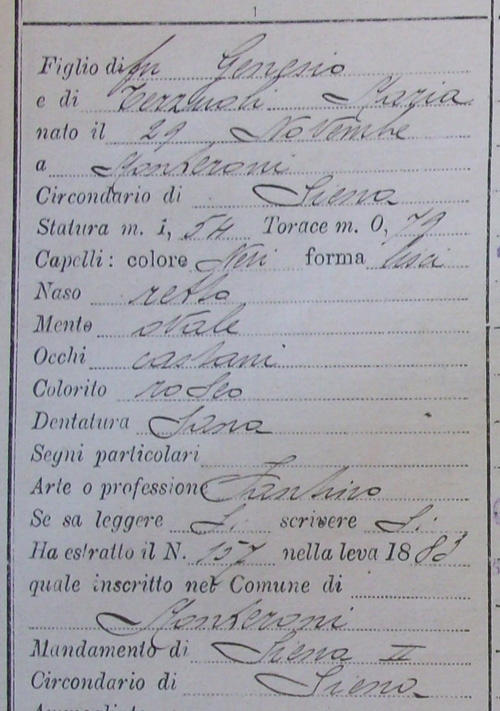 1
Figlio di fu Genesio
e di Terzuoli Maria
nato il 29 Novembre
a Monteroni
Circondario di Siena
Statura m. 1, 54 Torace m. 0, 79
Capelli: colore Neri forma lisci
Naso retto
Mento ovale
Occhi castani
Colorito roseo
Dentatura Sana
Segni particolari
Arte o professione Fantino
Se sa leggere Si scrivere Si
Ha estratto il N. 157 nella leva 1883
quale inscritto nel Comune di
Monteroni
Mandamento di Siena II
Circondario di Siena